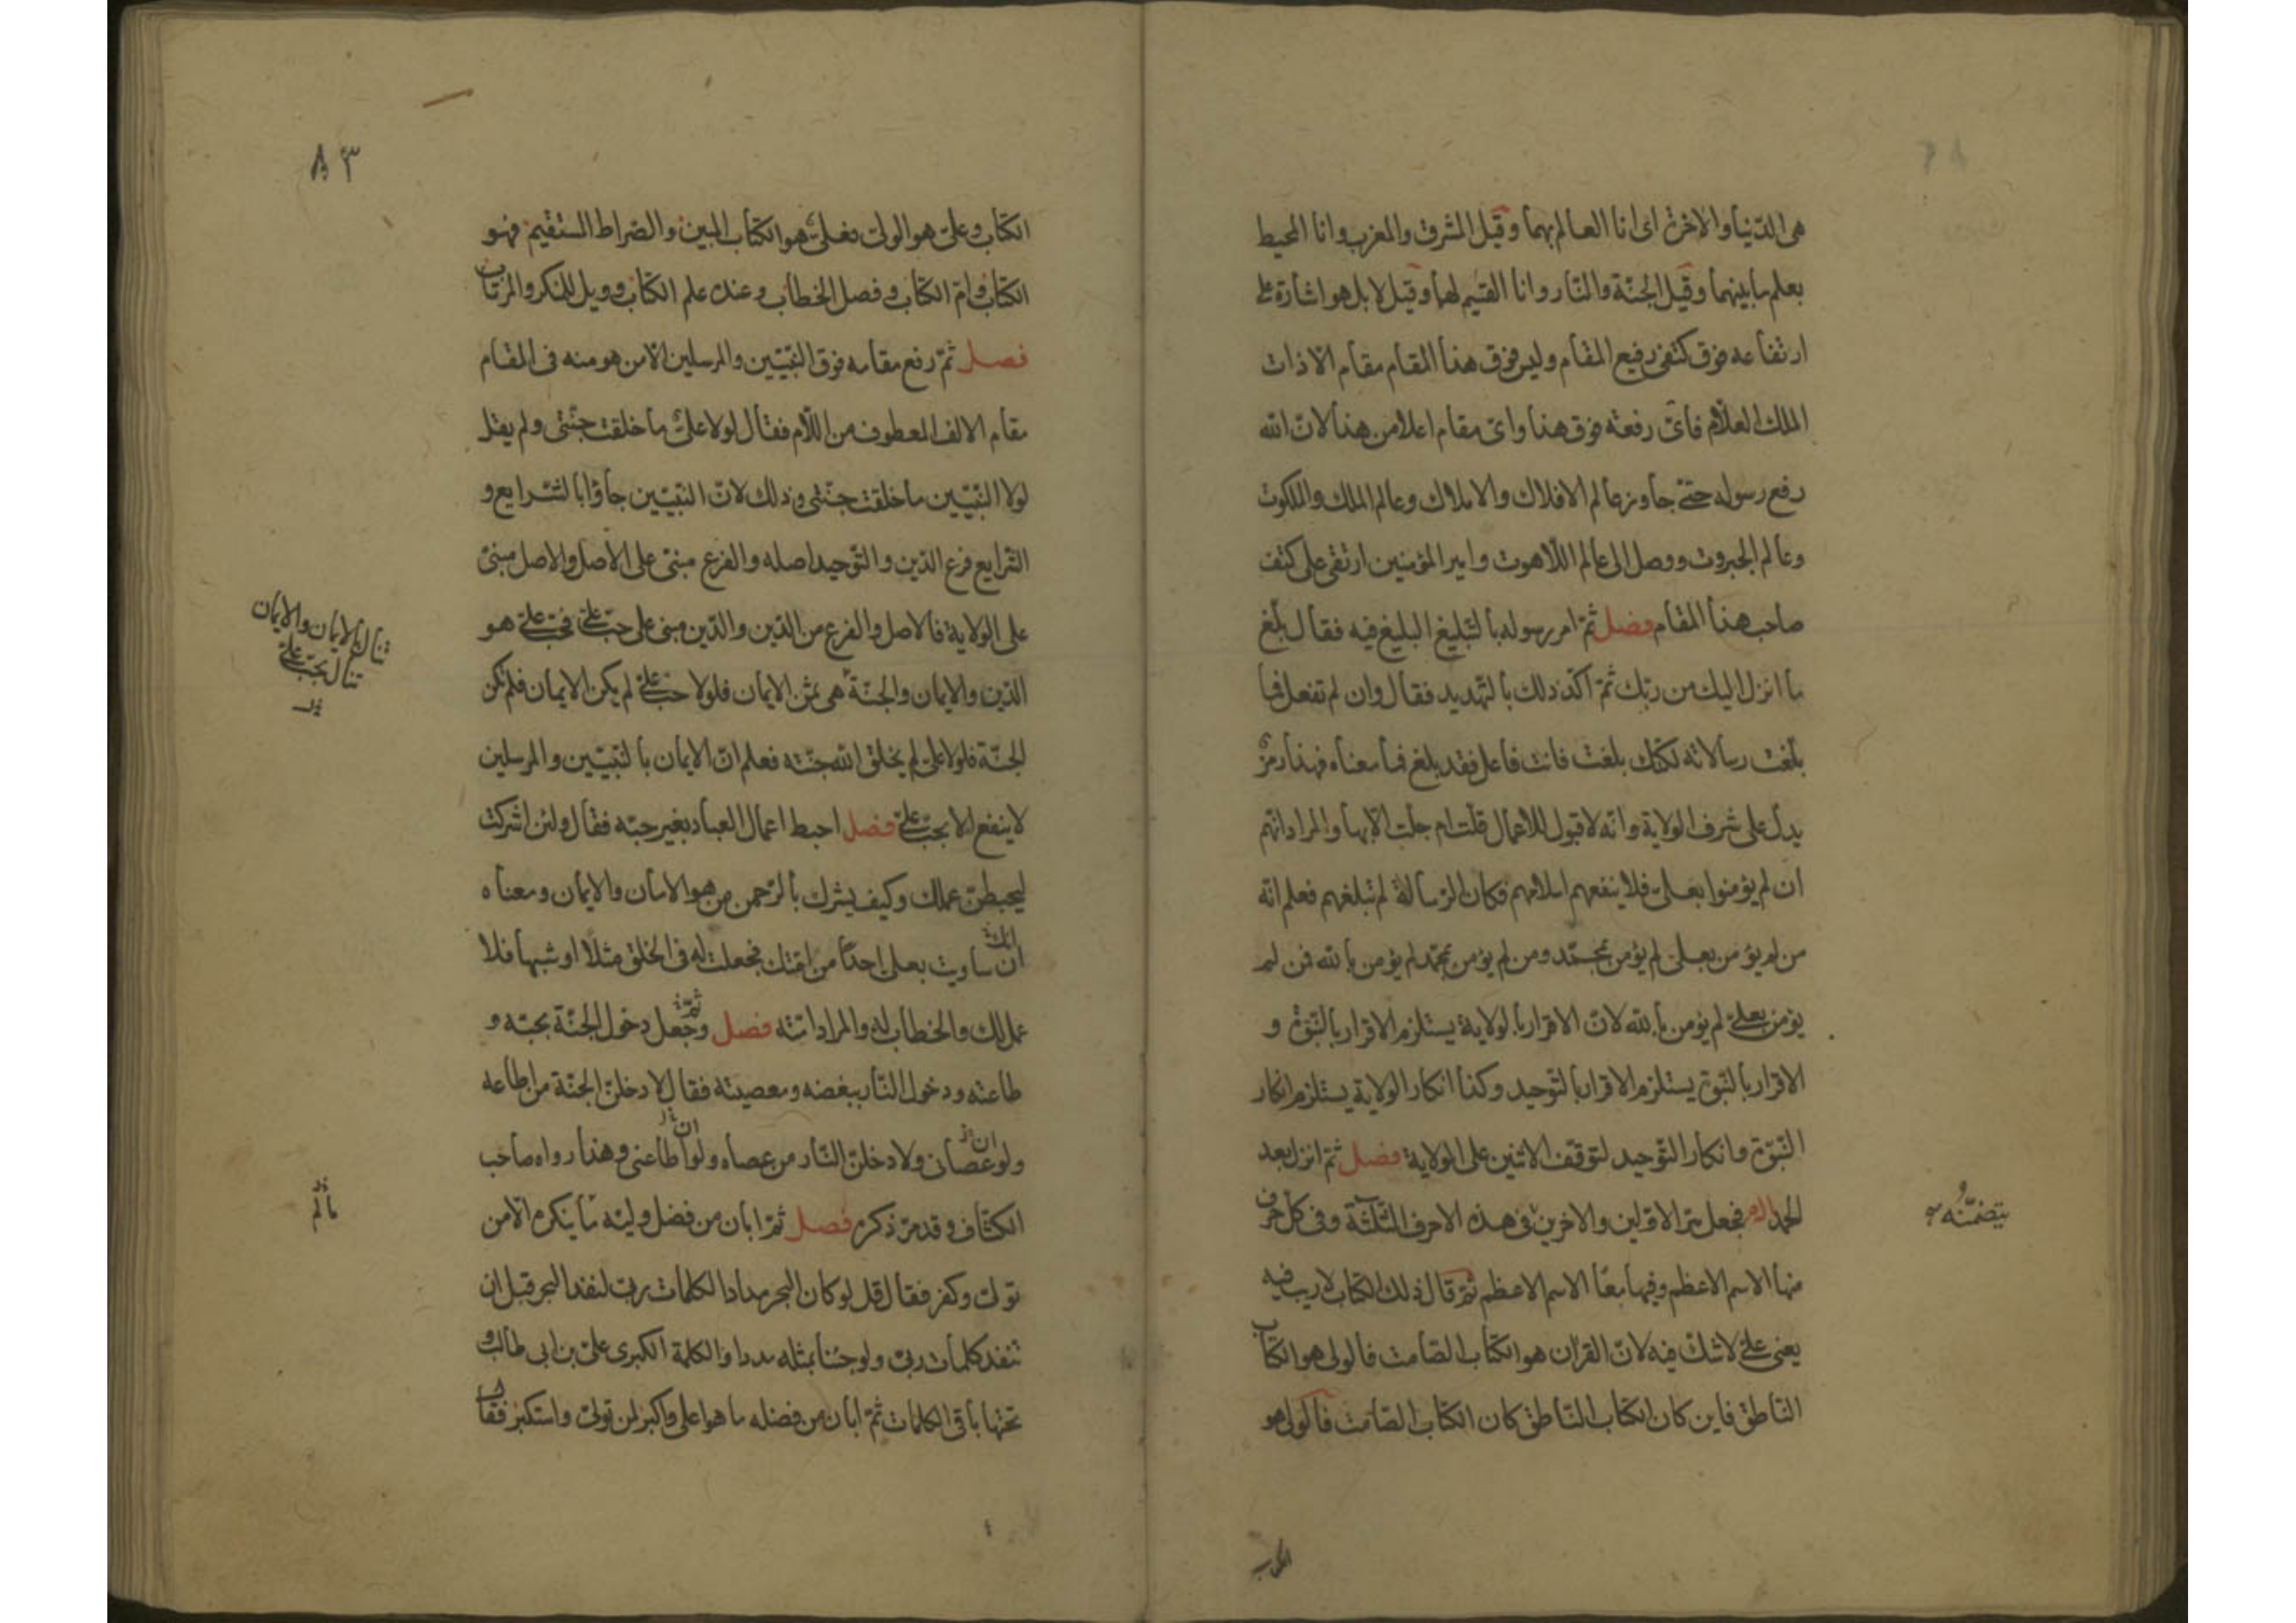 هى الدّنيا والاخرة اى انا العالم بهما وقيل المشرق والمغرب وانا المحيط
بعلم ما بينهما وقيل الجنّة والنّار وانا القسيم لهما وقيل لا بل هو اشارة على
ارتفاعه فوق كتفى رفيع المقام وليس فوق هذا المقام مقام الا ذات
الملك العلّام فاىّ رفعة فوق هذا واىّ مقام اعلا من هذا لانّ الله
رفع رسوله حتى جاوز عالم الافلاك والاملاك وعالم الملك والملكوت
وعالم الجبروت ووصل الى عالم اللّاهوت وامير المؤمنين ارتقى على كتف
صاحب هذا المقام فصل ثمّ امر رسوله بالتبليغ البليغ فيه فقال بلّغ
ما انزل اليك من ربّك ثمّ اكّد ذلك بالتهديد فقال وان لم تفعل فما
بلّغت رسالاته لكنّك بلغت فانت فاعل فقد بلغ فما معناه فهذا رمز
يدلّ على شرف الولاية وانّه لا قبول للاعمال قلّت ام جلّت الّا بها والمراد انّهم
ان لم يؤمنوا بعلى فلا ينفعهم اسلامهم فكان الرّسالة لم تبلغهم فعلم انّه
من لم يؤمن بعلى لم يؤمن بمحمّد ومن لم يؤمن بمحمّد لم يؤمن بالله فمن لم
يؤمن بعلىّ لم يؤمن بالله لانّ الاقرار بالولاية يستلزم الاقرار بالنّبوّة و
الاقرار بالنّبوّة يستلزم الاقرار بالتّوحيد وكذا انكار الولاية يستلزم انكار
النّبوّة وانكار التّوحيد لتوقّف الاثنين على الولاية فصل ثمّ انزل بعد
الحمد الم فجعل سرّ الاوّلين والاخرين فى هذه الاحرف الثّلثة وفى كلّ حرف
يتضمّنه
منها الاسم الاعظم وفيها معًا الاسم الاعظم ثمّ قال ذلك الكتاب لا ريب فيه
يعنى علىّ لا شكّ فيه لانّ القران هو الكتاب الصّامت فالولى هو الكتاب
النّاطق فاين كان الكتاب النّاطق كان الكتاب الصّامت فالولى هو
الكتاب
٨٣
الكتاب وعلىّ هو الولىّ فعلىّ هو الكتاب المبين والصّراط المستقيم فهو
الكتاب وامّ الكتاب وفصل الخطاب وعنده علم الكتاب وويل للمنكر والمرتاب
فصل ثمّ رفع مقامه فوق النّبيّين والمرسلين الّا من هو منه فى المقام
مقام الالف المعطوف من اللّام فقال لولا علىّ ما خلقت جنّتى ولم يقل
لولا النّبيّين ما خلقت جنّتى وذلك لانّ النّبيّين جاؤا بالشّرايع و
الشّرايع فرع الدّين والتّوحيد اصله والفرع مبنىّ على الاصل والاصل مبنىّ
على الولاية فالاصل والفرع من الدّين والدّين مبنى على حبّ علىّ فحبّ علىّ هو
تنال بالايمان والايمان
تنال بحبّ علىّ
الدّين والايمان والجنّة هى ثمن الايمان فلولا حبّ علىّ لم يكن الايمان فلم تكن
الجنّة فلولا علىّ لم يخلق الله جنّته فعلم انّ الايمان بالنّبيّين والمرسلين
لا ينفع الا بحبّ علىّ فصل احبط اعمال العباد بغير حبّه فقال ولئن اشركت
ليحبطنّ عملك وكيف يشرك بالرّحمن من هو الامان والايمان ومعناه
انّك
ان ساويت بعلى احدًا من امّتك فجعلت له فى الخلق مثلًا او شبها فلا
عمل لك والخطاب له والمراد امّته فصل ثمّ وجعل دخول الجنّة بحبّه و
طاعته ودخول النّار ببغضه ومعصيته فقال لادخلنّ الجنّة من اطاعه
ان ان
ولو عصانى ولادخلنّ النّار من عصاه ولو اطاعنى وهذا رواه صاحب
الكشّاف وقد مرّ ذكره فصل ثمّ ابان من فضل وليّه ما ينكره الّا من
مالم
تولّى وكفر فقال قل لو كان البحر مدادا لكلمات ربّى لنفد البحر قبل ان
تنفد كلمات ربّى ولو جئنا بمثله مددا والكلمة الكبرى علىّ بن ابى طالب و
تحتها باقى الكلمات ثمّ ابان من فضله ما هو اعلى واكبر لمن تولىّ واستكبر فقال